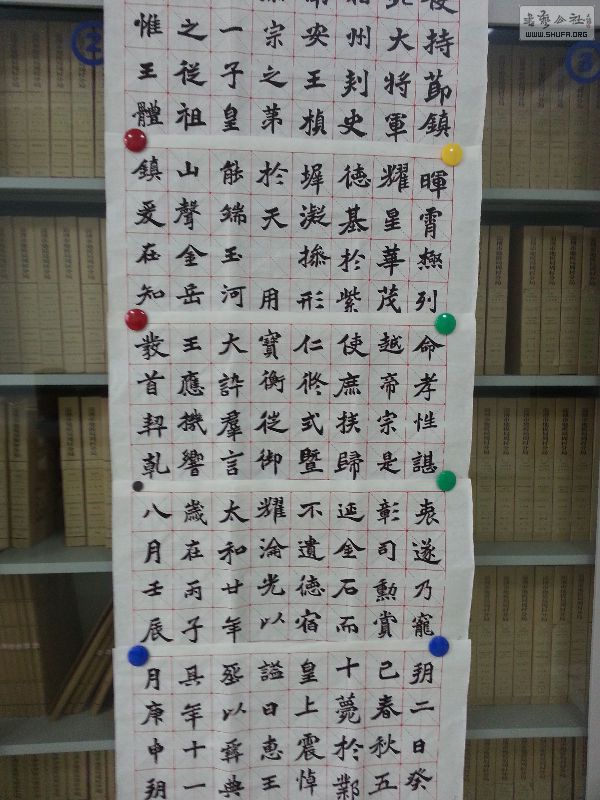 使持節鎮
北大將軍
相州刺史
南安王楨
恭宗之第
一子皇
之從祖
惟王體
暉霄極列
耀星華茂
德基於紫
墀凝操形
於天用
能端玉河
山聲金岳
鎮爰在知
命孝性諶
越帝宗是
使庶族歸
仁攸式暨
寶衡徙御
大訊羣言
王應機響
發首契乾
衷遂乃寵
彰司勳賞
延金石而
不遺德宿
耀淪光以
太和廿年
歲在丙子
八月壬辰
朔二日癸
巳春秋五
十薨於鄴
皇上震悼
謚曰惠王
葬以彝典
其年十一
月庚申朔
書藝公社
WWW.SHUFA.ORG